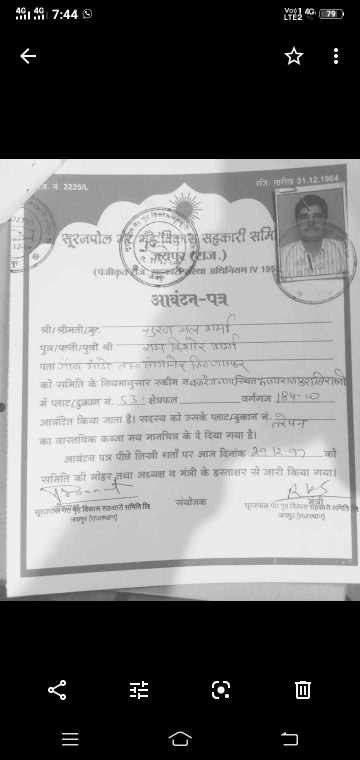 4G 4G 7:44
Vo) 1 4G LTE2 79
रजि. नं. 2235/L
रजि. तारीख 31.12.1964
सूरजपोल गेट गृह विकास सहकारी समिति
जयपुर (राज.)
(पंजीकृत राज. सहकारी संस्था अधिनियम IV
आवंटन-पत्र
श्री/श्रीमती/कु. सुरज मल शर्मा
पुत्र/पत्नी/पुत्री श्री राम किशोर शर्मा
पता गांव
को समिति के नियमानुसार स्कीम स्थित
में प्लाट/दुकान नं. 53 क्षेत्रफल वर्गगज 184
आवंटित किया जाता है। सदस्य को उसके प्लाट/दुकान नं.
का वास्तविक कब्जा मय मानचित्र के दे दिया गया है।
आवंटन पत्र पीछे लिखी शर्तों पर आज दिनांक को
समिति की मोहर तथा अध्यक्ष व मंत्री के हस्ताक्षर से जारी किया गया।
संयोजक
मंत्री
सूरजपोल गेट गृह विकास सहकारी समिति लि.
जयपुर (राजस्थान)
सूरजपोल गेट गृह विकास सहकारी समिति लि.
जयपुर (राजस्थान)